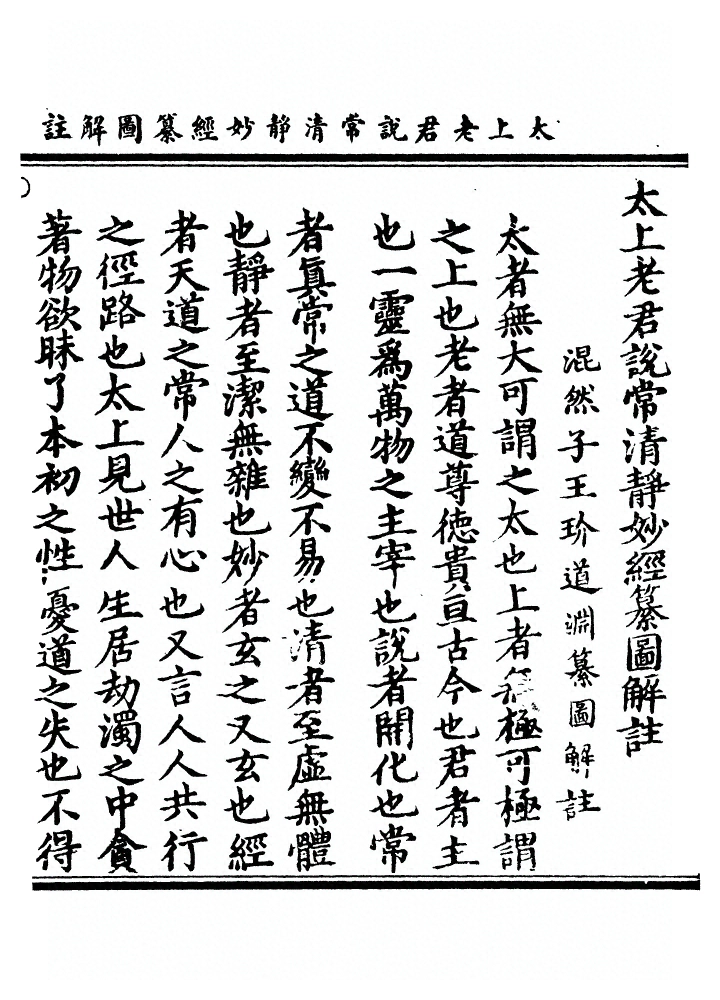 太上老君說常清靜妙經纂圖解註
太上老君說常清靜妙經纂圖解註
混然子王玠道淵纂圖解註
太者無大可謂之太也上者極可極謂
之上也老者道尊德貴亘古今也君者主
也一靈爲萬物之主宰也說者開化也常
者真常之道不變不易也清者至虛無體
也靜者至潔無雜也妙者玄之又玄也經
者天道之常人之有心也又言人人共行
之徑路也太上見世人生居劫濁之中貪
著物欲昧了本初之性憂道之失也不得